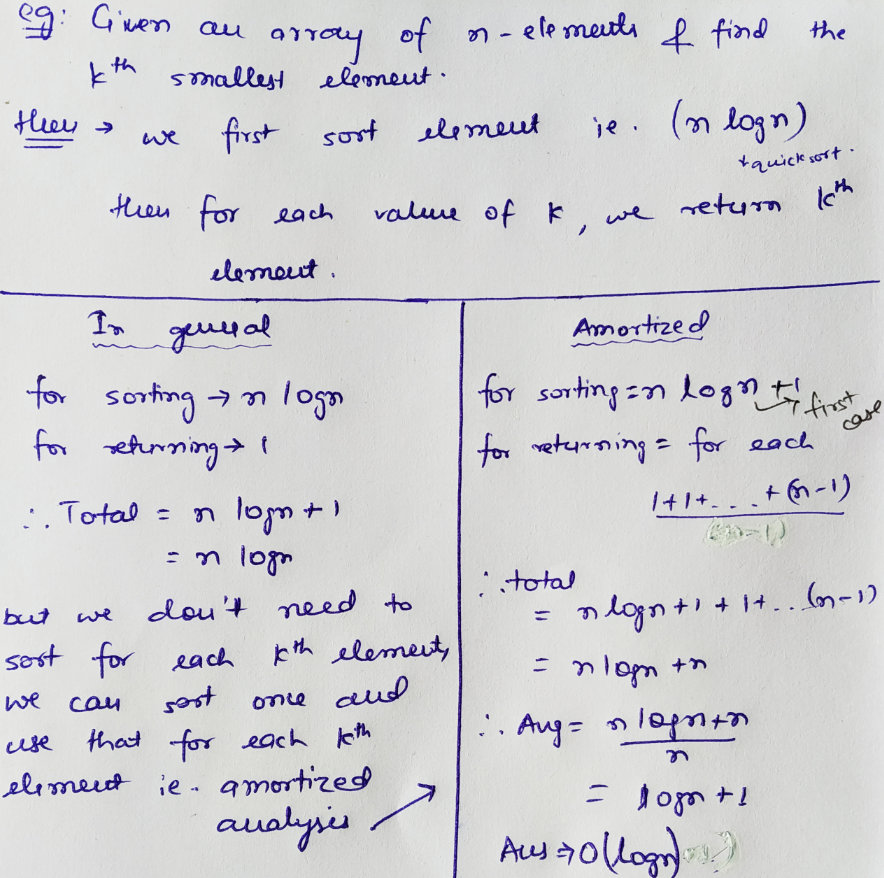 eg: Given an array of n-elements & find the
kth smallest element.
then → we first sort element ie. (n logn)
+quicksort.
then for each value of k, we return kth
element.
In general
for sorting → n logn
for returning → 1
∴ Total = n logn + 1
= n logn
but we don't need to
sort for each kth element,
we can sort once and
use that for each kth
element ie. amortized
analysis
Amortized
for sorting = n logn + 1
→ first case
for returning = for each
1+1+... + (n-1)
∴ total
= n logn + 1 + 1+.. (n-1)
= n logn + n
∴ Avg = n logn + n
n
= logn + 1
Ans ⇒ O(logn)